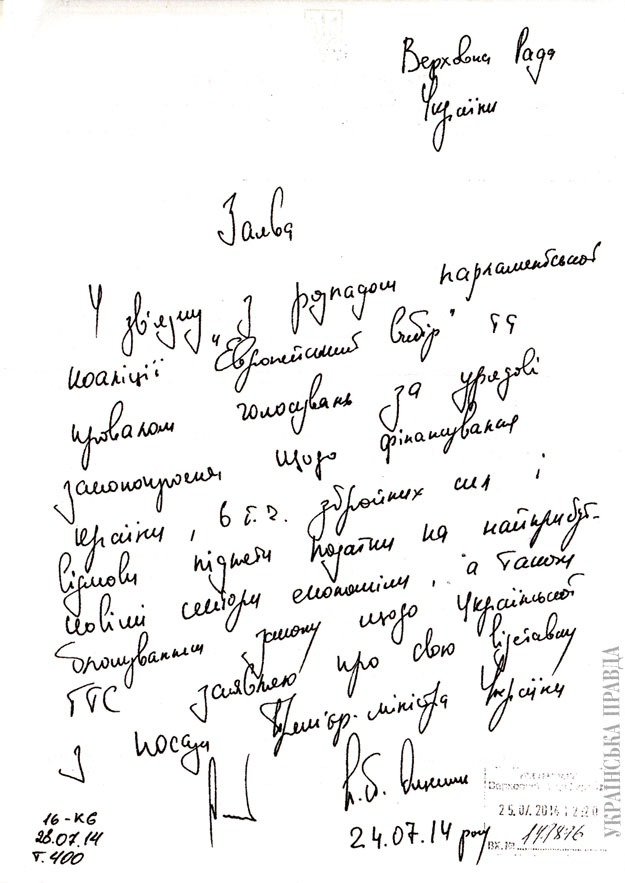 Верховна Рада
України
Заява
У зв'язку з розпадом парламентської
коаліції "Європейський вибір" та
провалом голосувань за урядові
законопроекти щодо фінансування
країни, в т.ч. збройних сил і
відмови підняти податки на найприбут-
ковіші сектори економіки, а також
блокуванням закону щодо Української
ГТС заявляю про свою відставку
з посади Прем'єр-міністра України
24.07.14 року
16-К6
28.07.14
Т. 400
Верховної
25.07.2014 12:20
Вх.№ 147876
УКРАЇНСЬКА ПРАВДА